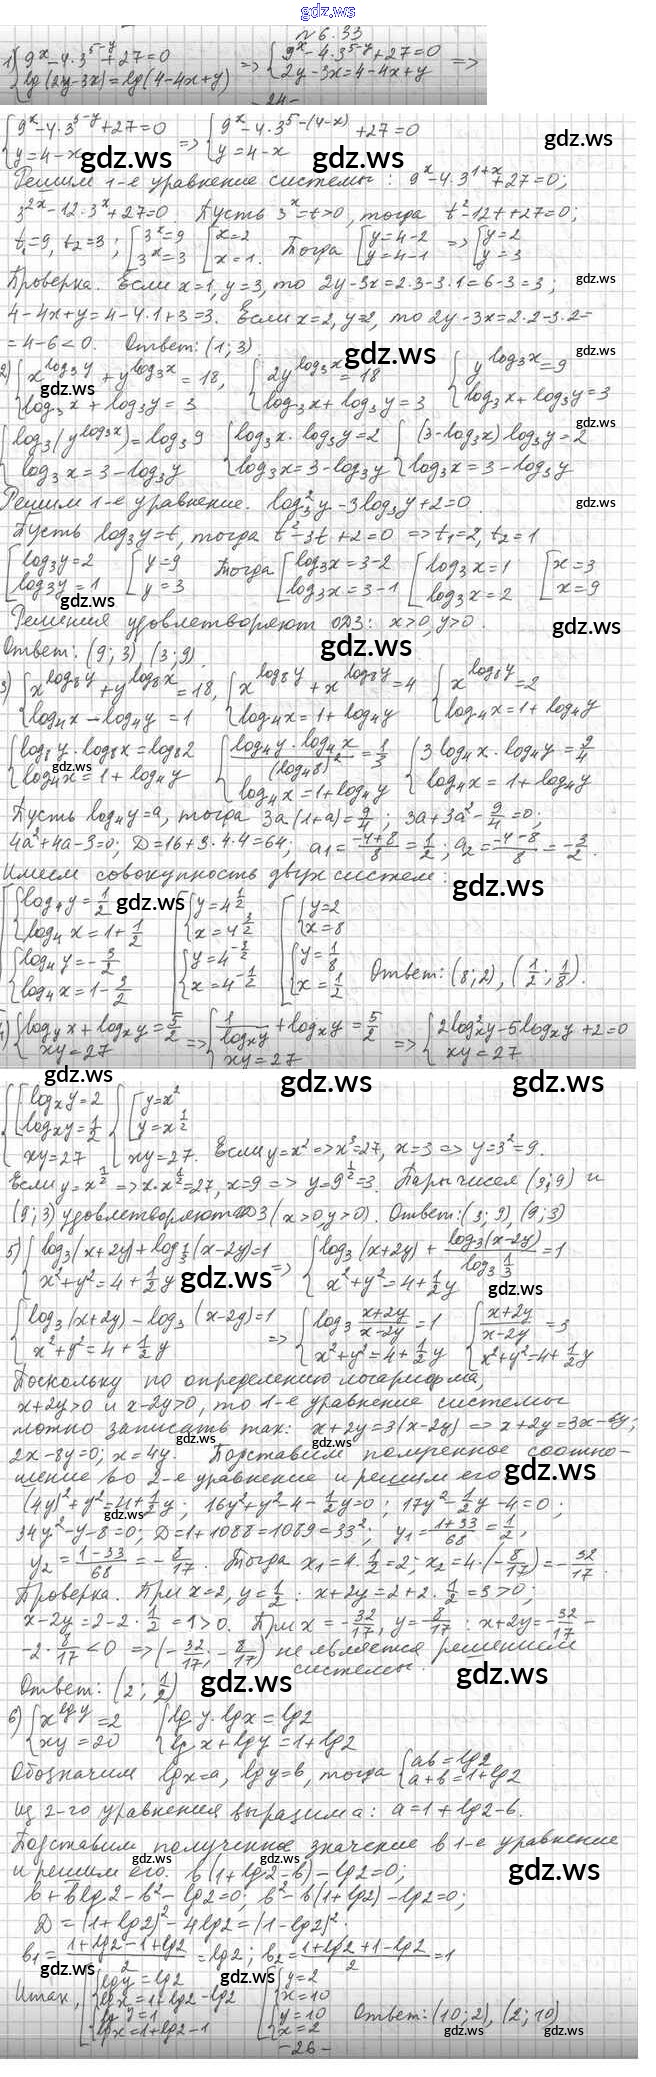 gdz.ws
№ 6.33
1) { 9^x - 4·3^(5-y) + 27 = 0 => { 9^x - 4·3^(5-y) + 27 = 0 =>
{ lg(2y-3x) = lg(4-4x+y) { 2y-3x = 4-4x+y
-24-
{ 9^x - 4·3^(5-y) + 27 = 0 => { 9^x - 4·3^(5-(4-x)) + 27 = 0
{ y = 4-x { y = 4-x
Решим 1-е уравнение системы: 9^x - 4·3^(1+x) + 27 = 0;
3^(2x) - 12·3^x + 27 = 0. Пусть 3^x = t > 0, тогда t² - 12t + 27 = 0;
t₁ = 9, t₂ = 3; [ 3^x = 9 [ x = 2 Тогда [ y = 4-2 => [ y = 2
[ 3^x = 3 [ x = 1. [ y = 4-1 [ y = 3
Проверка. Если x = 1, y = 3, то 2y-3x = 2·3-3·1 = 6-3 = 3;
4-4x+y = 4-4·1+3 = 3. Если x = 2, y = 2, то 2y-3x = 2·2-3·2 =
= 4-6 < 0. Ответ: (1; 3)
2) { x^(log₃y) + y^(log₃x) = 18, { 2y^(log₃x) = 18 { y^(log₃x) = 9
{ log₃x + log₃y = 3 { log₃x + log₃y = 3 { log₃x + log₃y = 3
{ log₃(y^(log₃x)) = log₃9 { log₃x·log₃y = 2 { (3-log₃x) log₃y = 2
{ log₃x = 3-log₃y { log₃x = 3-log₃y { log₃x = 3-log₃y
Решим 1-е уравнение. log₃²y - 3log₃y + 2 = 0.
Пусть log₃y = t, тогда t² - 3t + 2 = 0 => t₁ = 2, t₂ = 1
[ log₃y = 2 [ y = 9 Тогда [ log₃x = 3-2 [ log₃x = 1 [ x = 3
[ log₃y = 1 [ y = 3 [ log₃x = 3-1 [ log₃x = 2 [ x = 9
Решения удовлетворяют ОДЗ: x > 0, y > 0.
Ответ: (9; 3), (3; 9).
3) { x^(log₈y) + y^(log₈x) = 18, { x^(log₈y) + x^(log₈y) = 4 { x^(log₈y) = 2
{ log₄x - log₄y = 1 { log₄x = 1 + log₄y { log₄x = 1 + log₄y
{ log₈y·log₈x = log₈2 { (log₄y·log₄x)/(log₄8)² = 1/3 { 3log₄x·log₄y = 9/4
{ log₄x = 1 + log₄y { log₄x = 1 + log₄y { log₄x = 1 + log₄y
Пусть log₄y = a, тогда 3a(1+a) = 9/4; 3a + 3a² - 9/4 = 0;
4a² + 4a - 3 = 0; D = 16 + 3·4·4 = 64; a₁ = (-4+8)/8 = 1/2; a₂ = (-4-8)/8 = -3/2.
Имеем совокупность двух систем:
[ { log₄y = 1/2 [ { y = 4^(1/2) [ { y = 2
[ { log₄x = 1 + 1/2 [ { x = 4^(3/2) [ { x = 8
[ { log₄y = -3/2 [ { y = 4^(-3/2) [ { y = 1/8
[ { log₄x = 1 - 3/2 [ { x = 4^(-1/2) [ { x = 1/2 Ответ: (8; 2), (1/2; 1/8).
4) { log_y x + log_x y = 5/2 => { 1/(log_x y) + log_x y = 5/2 => { 2log_x²y - 5log_x y + 2 = 0
{ xy = 27 { xy = 27 { xy = 27
{ [ log_x y = 2 { [ y = x²
{ [ log_x y = 1/2 { [ y = x^(1/2)
{ xy = 27 { xy = 27. Если y = x² => x³ = 27, x = 3 => y = 3² = 9.
Если y = x^(1/2) => x·x^(1/2) = 27, x = 9 => y = 9^(1/2) = 3. Пары чисел (3; 9) и
(9; 3) удовлетворяют ОДЗ (x > 0 y > 0). Ответ: (3; 9), (9; 3)
5) { log₃(x+2y) + log_(1/3)(x-2y) = 1 => { log₃(x+2y) + log₃(x-2y)/log₃(1/3) = 1
{ x² + y² = 4 + 1/2 y { x² + y² = 4 + 1/2 y
{ log₃(x+2y) - log₃(x-2y) = 1 => { log₃ (x+2y)/(x-2y) = 1 { (x+2y)/(x-2y) = 3
{ x² + y² = 4 + 1/2 y { x² + y² = 4 + 1/2 y { x² + y² = 4 + 1/2 y
Поскольку по определению логарифма,
x+2y > 0 и x-2y > 0, то 1-е уравнение системы
можно записать так: x+2y = 3(x-2y) => x+2y = 3x-6y;
2x-8y = 0; x = 4y. Подставим полученное соотно-
шение во 2-е уравнение и решим его
(4y)² + y² = 4 + 1/2 y; 16y² + y² - 4 - 1/2 y = 0; 17y² - 1/2 y - 4 = 0;
34y² - y - 8 = 0; D = 1 + 1088 = 1089 = 33²; y₁ = (1+33)/68 = 1/2;
y₂ = (1-33)/68 = -8/17. Тогда x₁ = 4·1/2 = 2; x₂ = 4·(-8/17) = -32/17.
Проверка. При x = 2, y = 1/2: x+2y = 2+2·1/2 = 3 > 0;
x-2y = 2-2·1/2 = 1 > 0. При x = -32/17, y = -8/17: x+2y = -32/17 -
-2·8/17 < 0 => (-32/17; -8/17) не является решением
системы.
Ответ: (2; 1/2)
6) { x^(lg y) = 2 { lg y·lg x = lg 2
{ xy = 20 { lg x + lg y = 1 + lg 2
Обозначим lg x = a, lg y = b, тогда { ab = lg 2
{ a + b = 1 + lg 2
из 2-го уравнения выразим a: a = 1 + lg 2 - b.
Подставим полученное значение в 1-е уравнение
и решим его. b(1 + lg 2 - b) - lg 2 = 0;
b + b lg 2 - b² - lg 2 = 0; b² - b(1 + lg 2) - lg 2 = 0;
D = (1 + lg 2)² - 4 lg 2 = (1 - lg 2)².
b₁ = (1 + lg 2 - 1 + lg 2)/2 = lg 2; b₂ = (1 + lg 2 + 1 - lg 2)/2 = 1
Итак, [ { lg y = lg 2 [ { y = 2
[ { lg x = 1 + lg 2 - lg 2 [ { x = 10
[ { lg y = 1 [ { y = 10
[ { lg x = 1 + lg 2 - 1 [ { x = 2 Ответ: (10; 2), (2; 10)
-26-